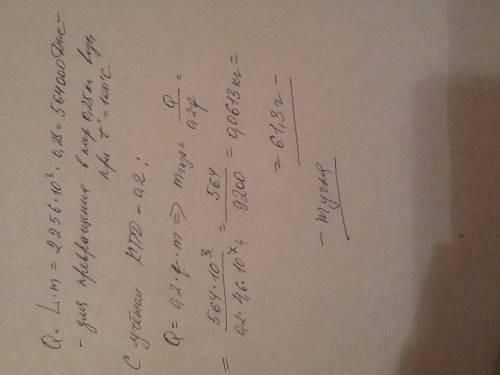 Q = L·m = 2256·10³·0,25 = 564000 Дж –
– для превращения в пар 0,25 кг воды
при t° = 100°C.
С учётом КПД = 0,2 :
Q = 0,2·q·m ⇒ m = Q / 0,2q =
= 564·10³ / 0,2·4,6·10⁷ = 564 / 9200 = 0,0613 кг =
= 61,3 г –
– m угля